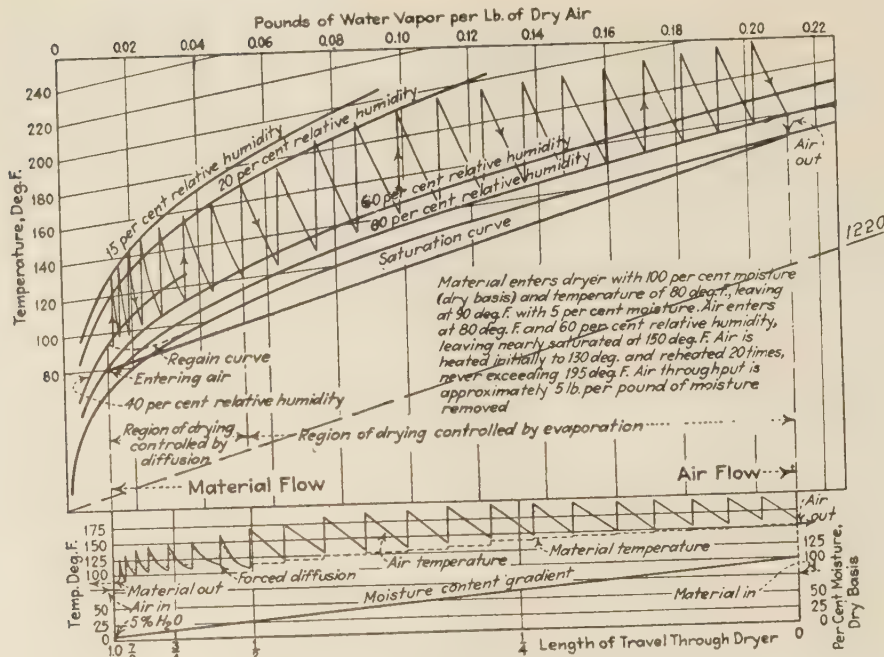 Pounds of Water Vapor per Lb. of Dry Air
0 0.02 0.04 0.06 0.08 0.10 0.12 0.14 0.16 0.18 0.20 0.22
Temperature, Deg.F.
240
220
200
180
160
140
120
100
80
15 per cent relative humidity
20 per cent relative humidity
60 per cent relative humidity
80 per cent relative humidity
Saturation curve
Air
out
1220
Material enters dryer with 100 per cent moisture
(dry basis) and temperature of 80 deg.F., leaving
at 90 deg.F. with 5 per cent moisture. Air enters
at 80 deg.F. and 60 per cent relative humidity,
leaving nearly saturated at 150 deg.F. Air is
heated initially to 130 deg. and reheated 20 times,
never exceeding 195 deg.F. Air throughput is
approximately 5 lb. per pound of moisture
removed
Regain curve
Entering air
40 per cent relative humidity
Region of drying
controlled by
diffusion
Region of drying controlled by evaporation
Material Flow
Air Flow
Temp. Deg.F.
175
150
125
100
75
50
25
0
Forced diffusion
Air temperature
Material temperature
Air
out
Material out
Air in
5% H₂O
Moisture content gradient
Material in
125
100
75
50
25
0
Per Cent Moisture,
Dry Basis
1.0
Length of Travel Through Dryer
0